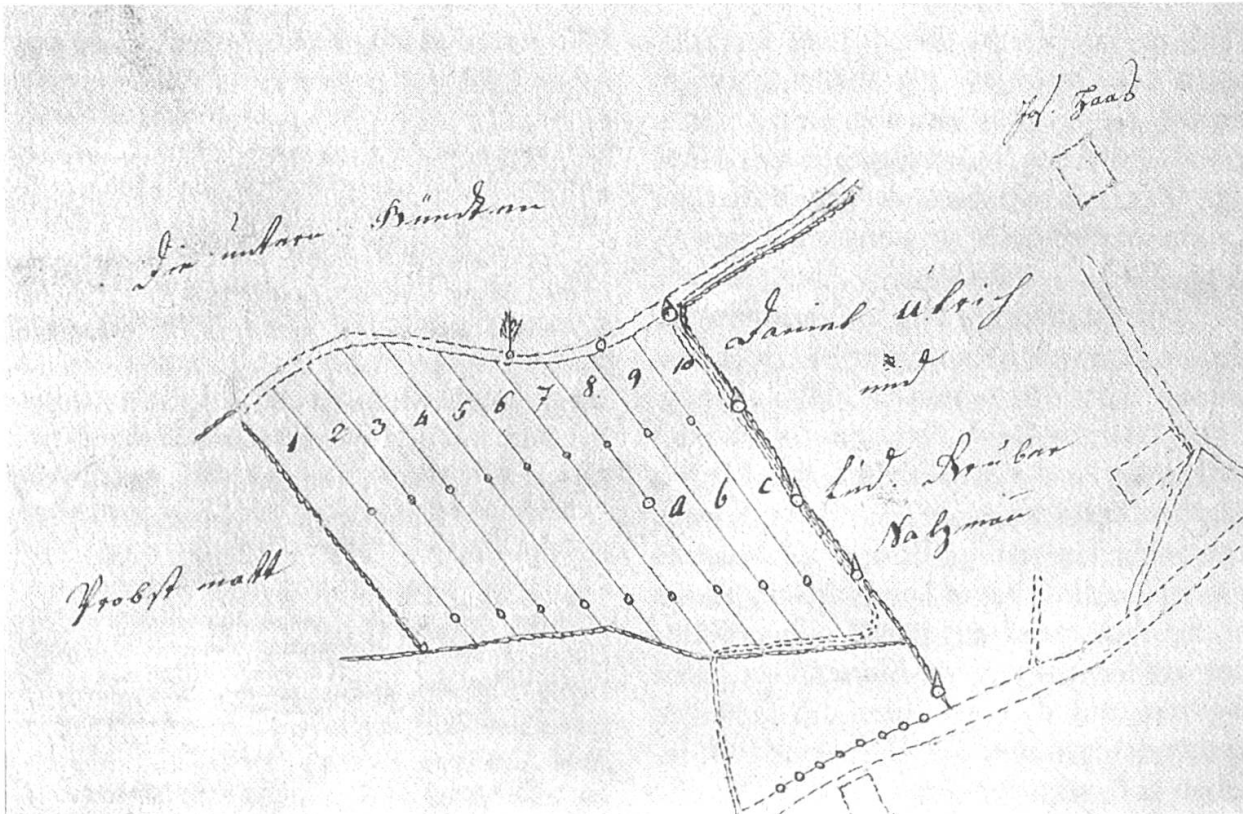 Jos. Haas
Die untern Bündten
Daniel Ulrich
und
Lud. Gruber
Salzmañ
1 2 3 4 5 6 7 8. 9 10
a b c
Probst matt